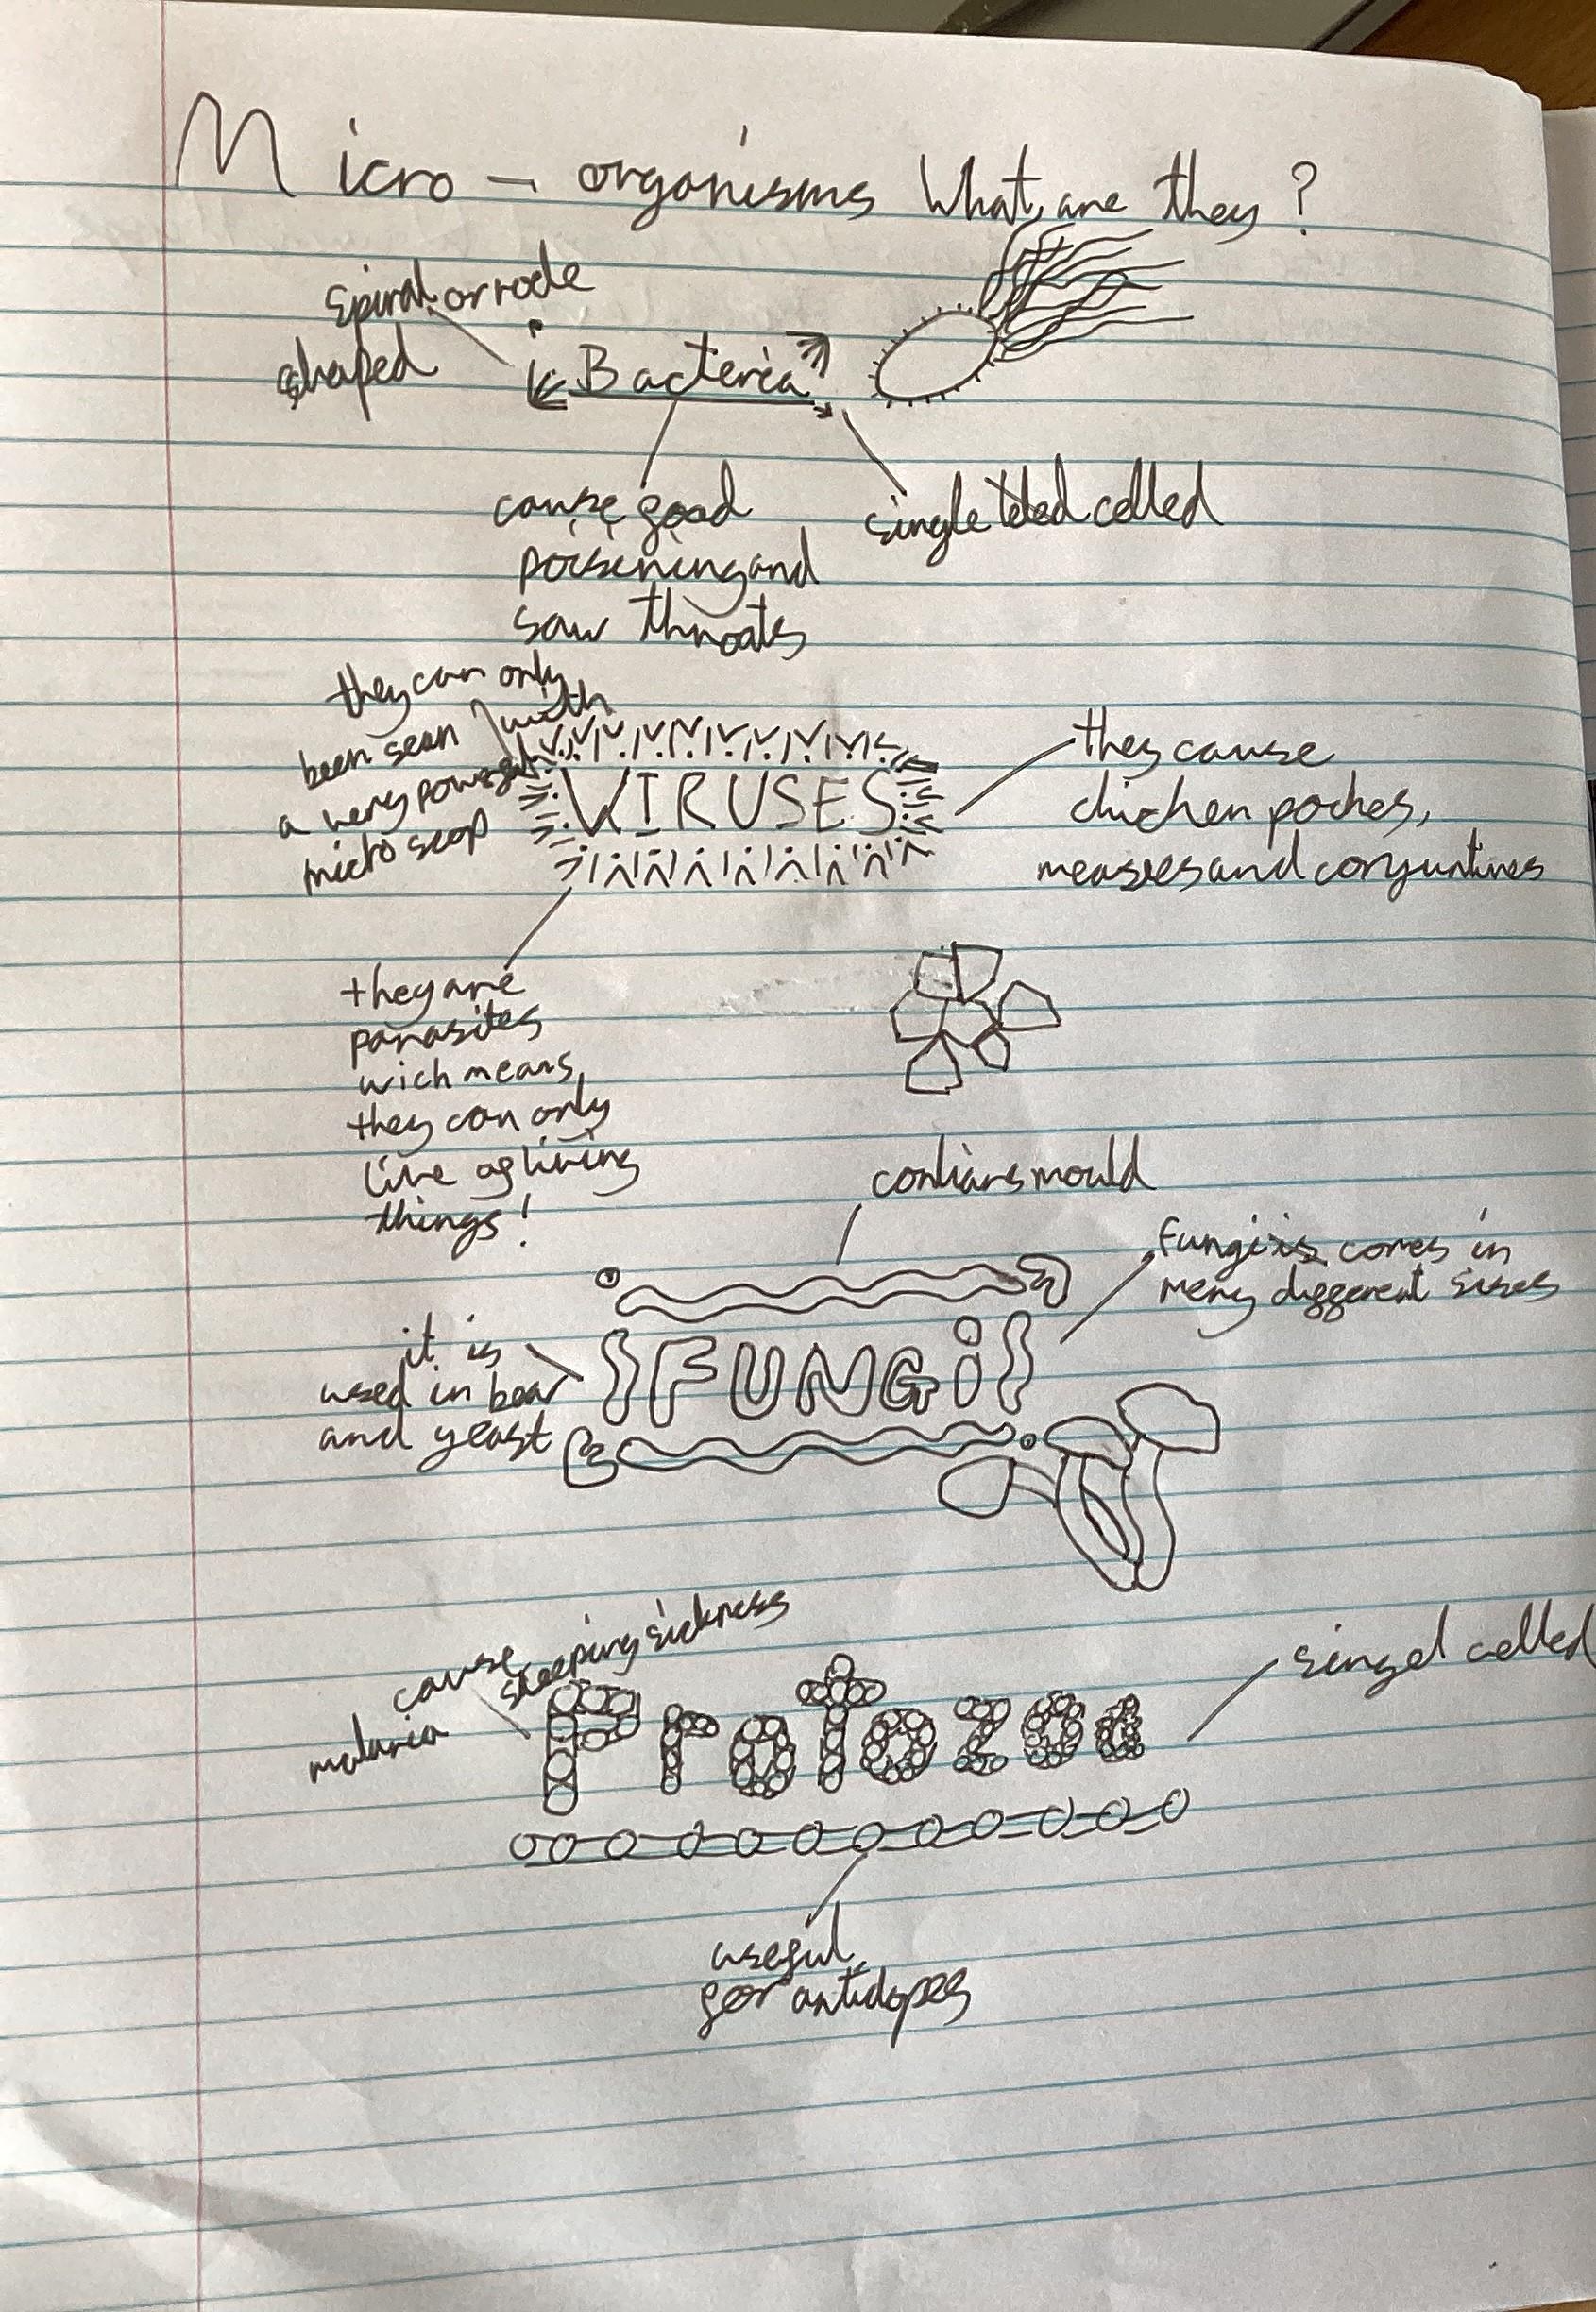 Micro - organisms What are they?
Spiral or rode
shaped
Bacteria
cause food
poisening and
saw throats
single celled
they can only
been seen with
a very powerful
micro scop
VIRUSES
they cause
chichen poches,
measles and conjuntives
they are
parasites
wich means
they can only
live of living
things!
contians mould
Fungi comes in
meny different sises
it is
used in bear
and yeast
FUNGi
cause sleeping sickness
malaria
Protozoa
singel celled
useful
for antidopes